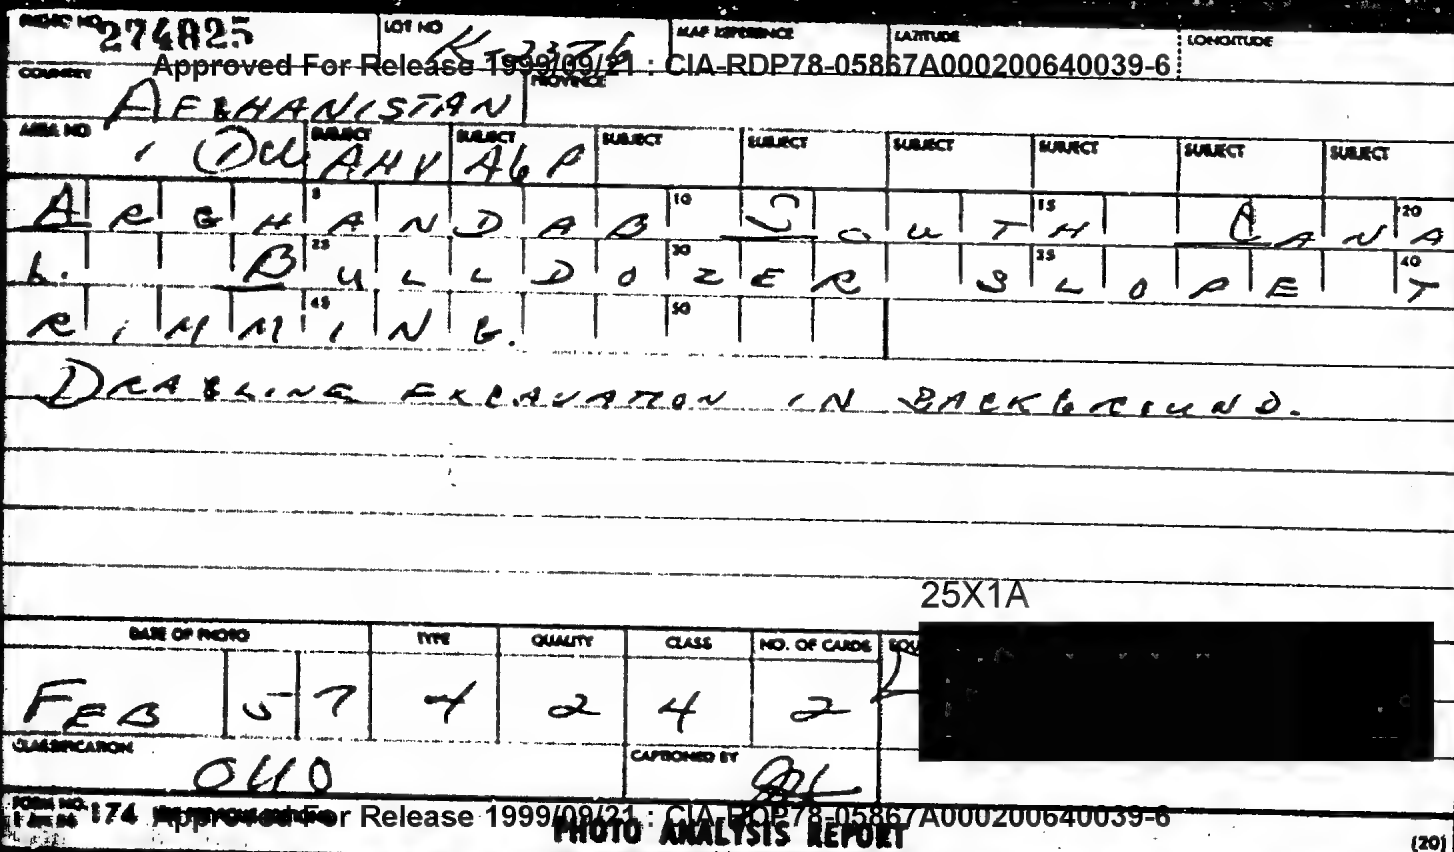 PHOTO NO. 274825 LOT NO K-3376 MAP REFERENCE LATITUDE LONGITUDE
Approved For Release 1999/09/21 : CIA-RDP78-05867A000200640039-6
COUNTRY AFGHANISTAN PROVINCE
AREA NO SUBJECT SUBJECT SUBJECT SUBJECT SUBJECT SUBJECT SUBJECT SUBJECT
1 AHV AGP
ARGHANDAB 10 SOUTH 15 CANA 20
L. BULLDOZER SLOPE T 25 30 35 40
RIMMING. 45 50
DRAGLINE EXCAVATION IN BACKGROUND.
25X1A
DATE OF PHOTO TYPE QUALITY CLASS NO. OF CARDS
FEB 57 4 2 4 2
CLASSIFICATION OUO CAPTIONED BY
FORM NO. 874
Approved For Release 1999/09/21 : CIA-RDP78-05867A000200640039-6
PHOTO ANALYSIS REPORT
(20)